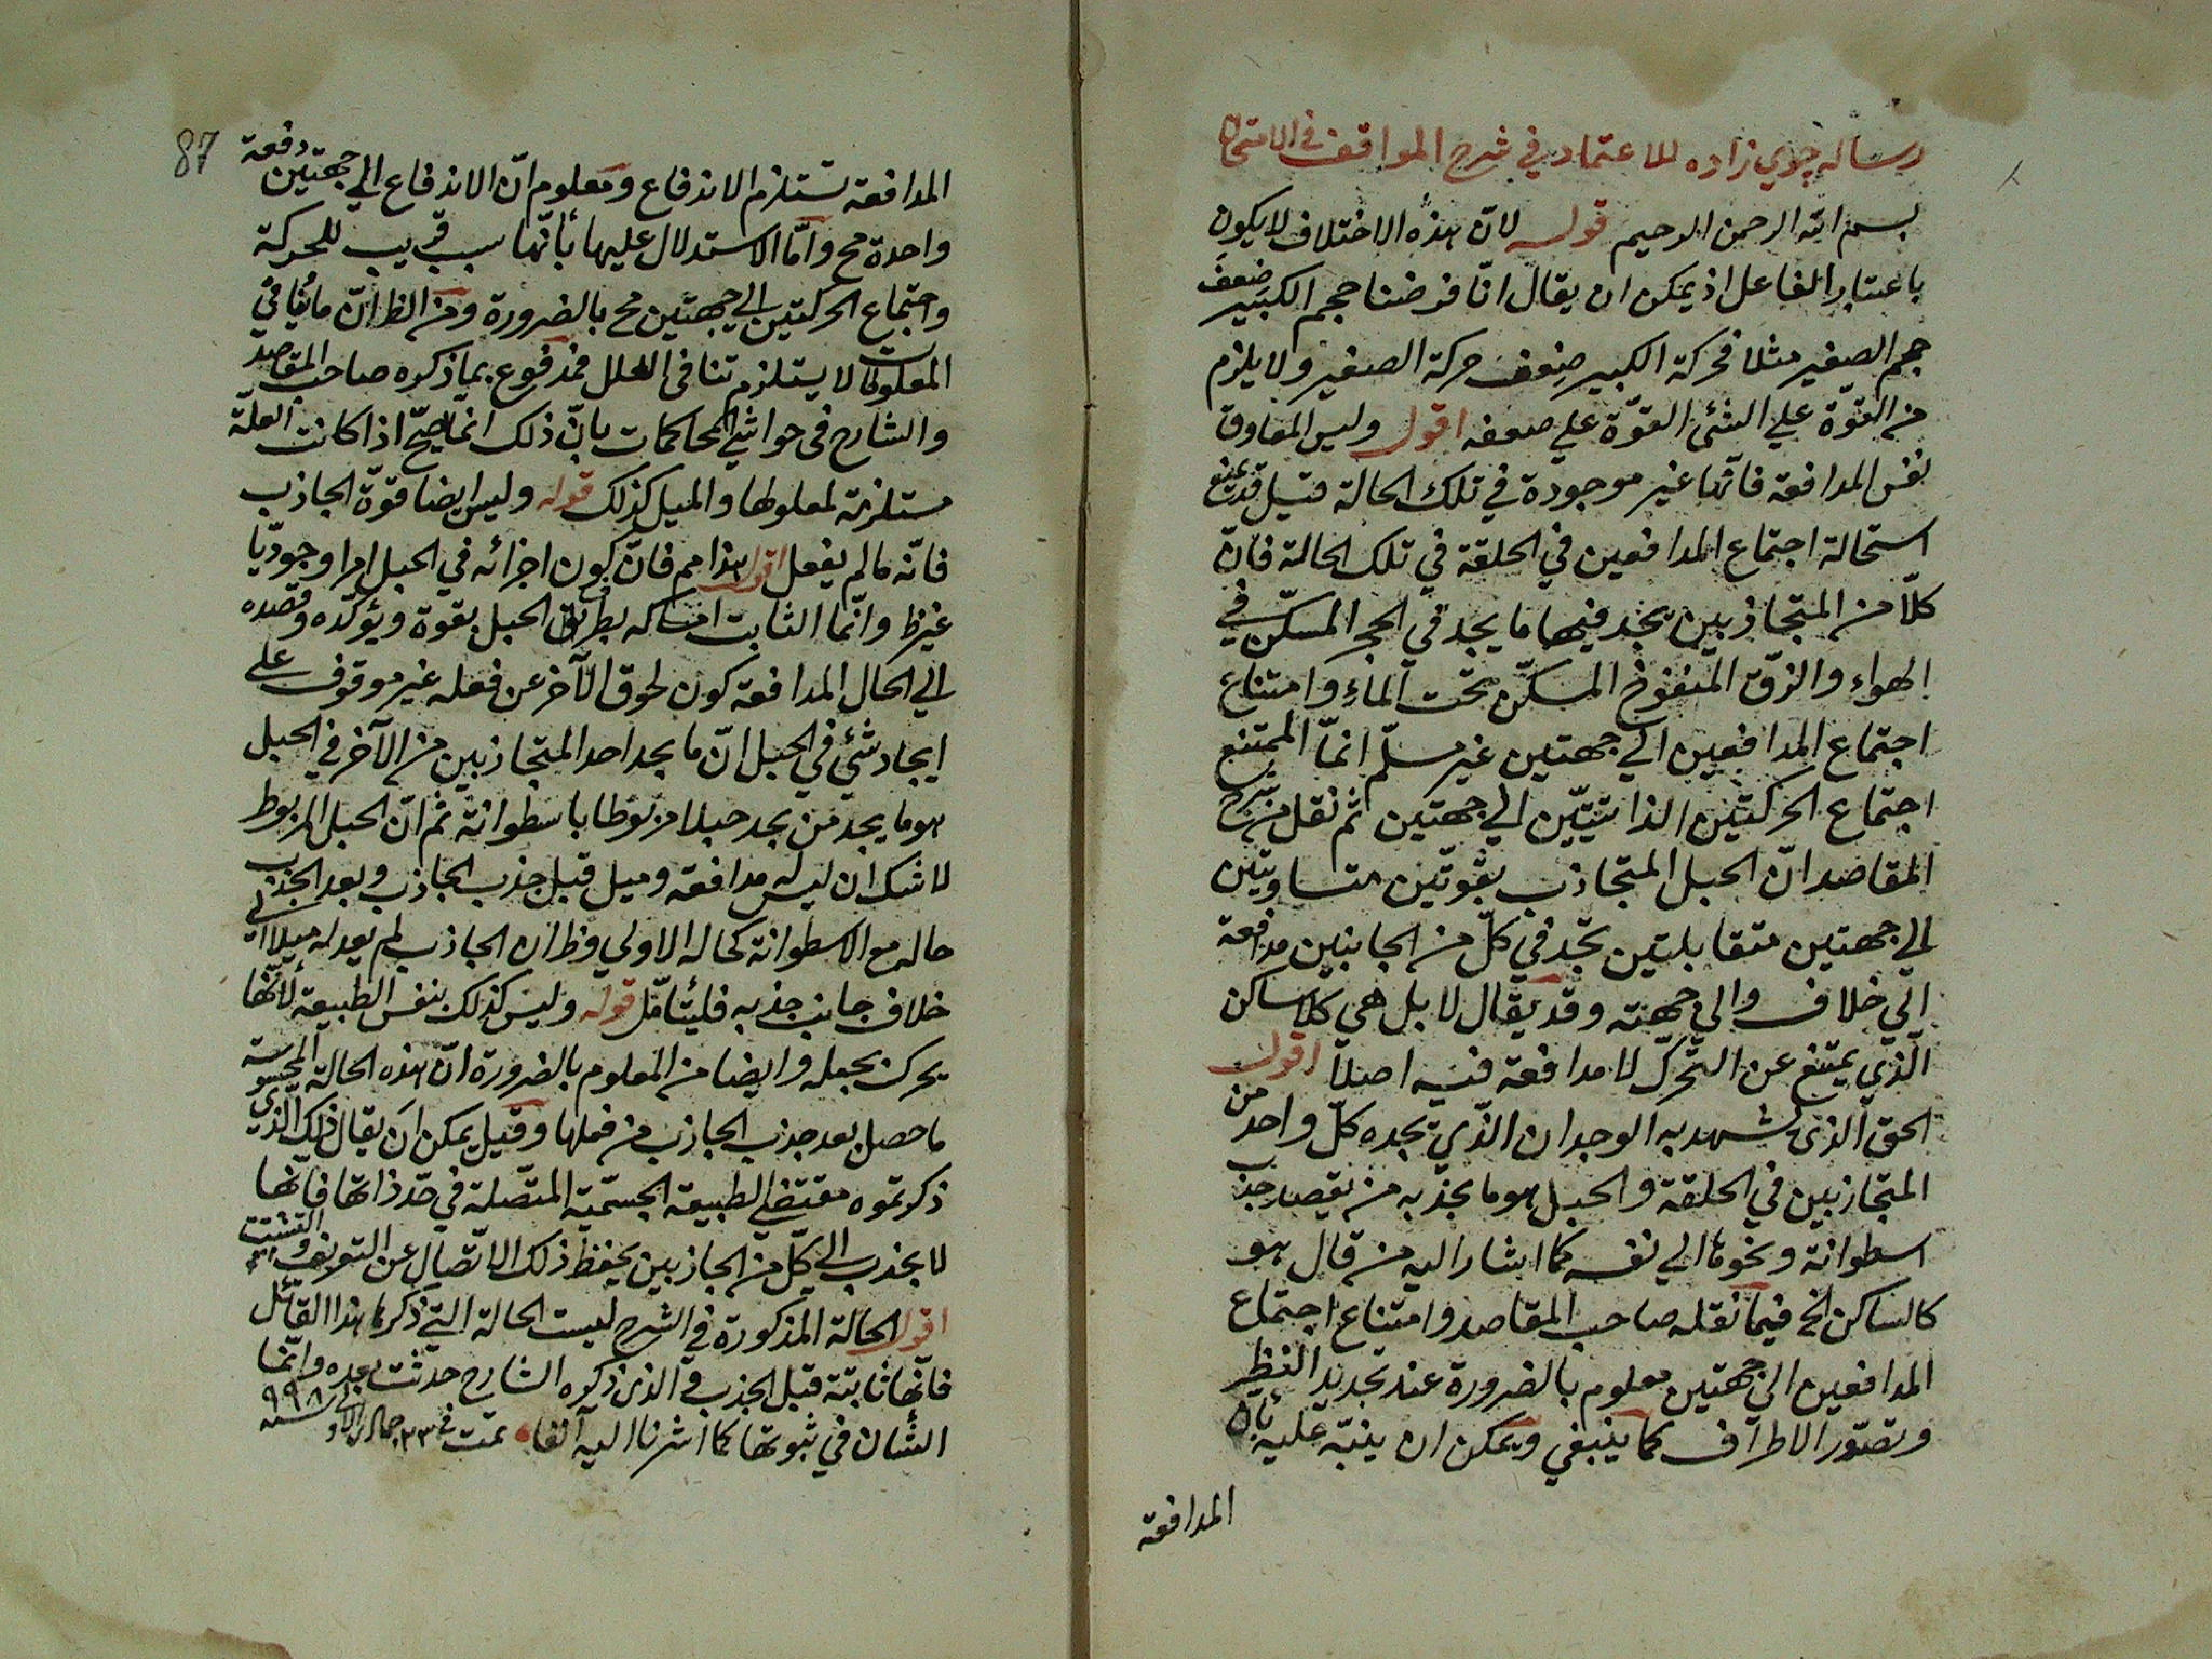 رساله جوي زاده للاعتماد في شرح المواقف في الامتحان
بسم الله الرحمن الرحيم قوله لانّ هذه الاختلاف لا يكون
باعتبار الفاعل اذ يمكن ان يقال انّا فرضنا حجم الكبير ضعف
حجم الصغير مثلا فحركة الكبير ضعف حركة الصغير ولا يلزم
من القوّة علي الشئ القوّة علي ضعفه اقول وليس المعاوق
نفس المدافعة فانّها غير موجودة في تلك الحالة قيل قد يمنع
استحالة اجتماع المدافعين في الحلقة في تلك الحالة فانّ
كلّا من المتجاذبين يجد فيها ما يجد في الحجر المسكّن في
الهواء والزقّ المنفوخ المسكّن تحت الماء وامتناع
اجتماع المدافعين الي جهتين غير مسلّم انّما الممتنع
اجتماع الحركتين الذاتيتيّن الي جهتين ثم نقل من شرح
المقاصد انّ الحبل المتجاذب بقوّتين متساويتين
الي جهتين متقابلتين تجد في كلّ من الجانبين مدافعة
الي خلاف والي جهته وقد يقال لا بل هي كالساكن
الّذي يمتنع عن التحرّك لا مدافعة فيه اصلا اقول
الحق الّذي شهد به الوجدان الّذي يجده كلّ واحد من
المتجاذبين في الحلقة والحبل هو ما يجذبه من يقصد جذب
اسطوانة ونحوها الي نفسه كما اشار اليه من قال هو
كالساكن الخ فيما نقله صاحب المقاصد وامتناع اجتماع
المدافعين الي جهتين معلوم بالضرورة عند تجديد النظر
وتصوّر الاطراف كما ينبغي ويمكن ان ينبّه عليه بأن
المدافعة
87
المدافعة تستلزم الاندفاع ومعلوم انّ الاندفاع الي جهتين دفعة
واحدة مح وامّا الاستدلال عليها بأنّها سبب قريب للحركة
واجتماع الحركتين الي جهتين مح بالضرورة ومن الظ انّ ما ينافي
المعلولات لا يستلزم تنافى العلل فمدفوع بما ذكره صاحب المقاصد
والشارح في حواشي المحاكمات بانّ ذلك انّما يصحّ اذا كانت العلّة
مستلزمة لمعلولها والميل كذلك قوله وليس ايضا قوّة الجاذب
فانّه ما لم يفعل اقول هذا مم فانّ كون اجزائه في الحبل امرا وجوديّا
غير ظ وانّما الثابت امساكه بطرف الحبل بقوة ويؤكّده وقصده
الي الحال المدافعة كون لحوق الآخر عن فعله غير موقوف علي
ايجاد شئ في الحبل انّ ما يجد احد المتجاذبين من الآخر في الحبل
هو ما يجد من يجد حبلا مربوطا باسطوانة ثم انّ الحبل المربوط
لا شك ان ليس له مدافعة وميل قبل جذب الجاذب وبعد الجذب
حاله مع الاسطوانة كحاله الاولي وظ ان الجاذب لم يعد له ميلا الي
خلاف جانب جذبه فليتأمّل قوله وليس كذلك بنفس الطبيعة لأنّها
يحرك بجبله وايضا من المعلوم بالضرورة انّ هذه الحالة المحسوسة
ما حصل بعد جذب الجاذب من فعلها وقيل يمكن ان يقال ذلك الّذي
ذكرتموه مقتضي الطبيعة الجسميّة المتّصلة في حدّ ذاتها فانّها
لا بجذب الي كلّ من الجاذبين يحفظ ذلك الاتّصال عن التفريق والتشتت
اقول الحالة المذكورة في الشرح ليست الحالة التي ذكرها هذا القائل
فانّها ثابتة قبل الجذب والّذي ذكره الشارح حدثت بعده وانّما
الشأن في ثبوتها كما اشرنا اليه آنفا تمت في ٢٣ جمادي الاولي سنه ٩٩٨